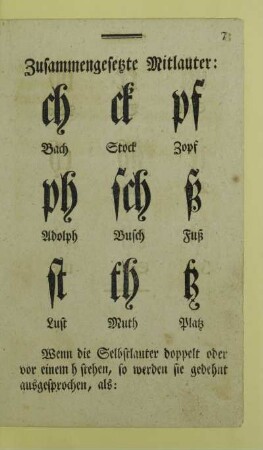 7
Zusammengesetzte Mitlauter:
ch ck pf
Bach Stock Zopf
ph sch ß
Adolph Busch Fuß
st th tz
Lust Muth Platz
Wenn die Selbstlauter doppelt oder
vor einem h stehen, so werden sie gedehnt
ausgesprochen, als: